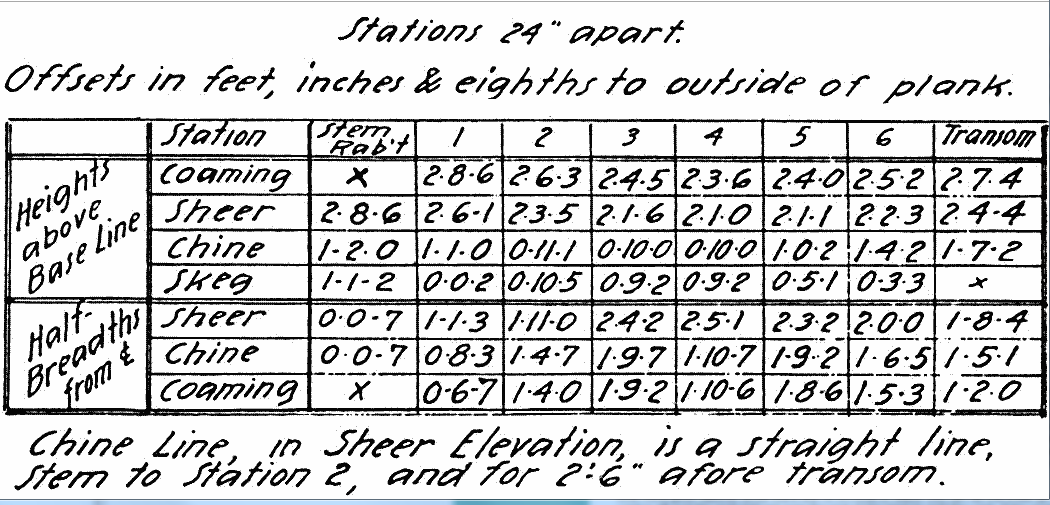 Stations 24" apart.
Offsets in feet, inches & eighths to outside of plank.
Station Stem Rab't 1 2 3 4 5 6 Transom
Heights above Base Line
Coaming x 2·8·6 2·6·3 2·4·5 2·3·6 2·4·0 2·5·2 2·7·4
Sheer 2·8·6 2·6-1 2·3·5 2·1·6 2·1·0 2·1·1 2·2·3 2·4-4
Chine 1-2·0 1·1·0 0·11·1 0·10·0 0·10·0 1·0·2 1·4·2 1·7·2
Skeg 1-1-2 0·0·2 0·10·5 0·9·2 0·9·2 0·5·1 0·3·3 x
Half-Breadths from ℄
Sheer 0·0·7 1-1·3 1·11·0 2·4·2 2·5·1 2·3·2 2·0·0 1-8·4
Chine 0·0·7 0·8·3 1·4·7 1·9·7 1·10·7 1·9·2 1·6·5 1·5·1
Coaming x 0·6·7 1·4·0 1·9·2 1·10·6 1·8·6 1·5·3 1·2·0
Chine Line, in Sheer Elevation, is a straight line,
stem to Station 2, and for 2'·6" afore transom.